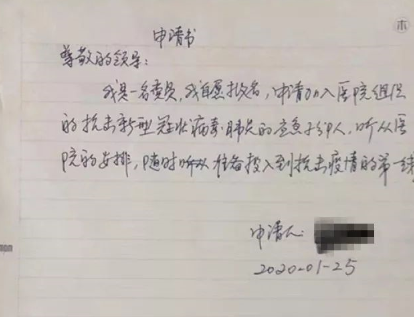 申请书
尊敬的领导：
我是一名党员，我自愿报名，申请加入医院组织
的抗击新型冠状病毒肺炎的应急部队，听从医
院的安排，随时听从准备投入到抗击疫情的第一线
申请人：
2020-01-25